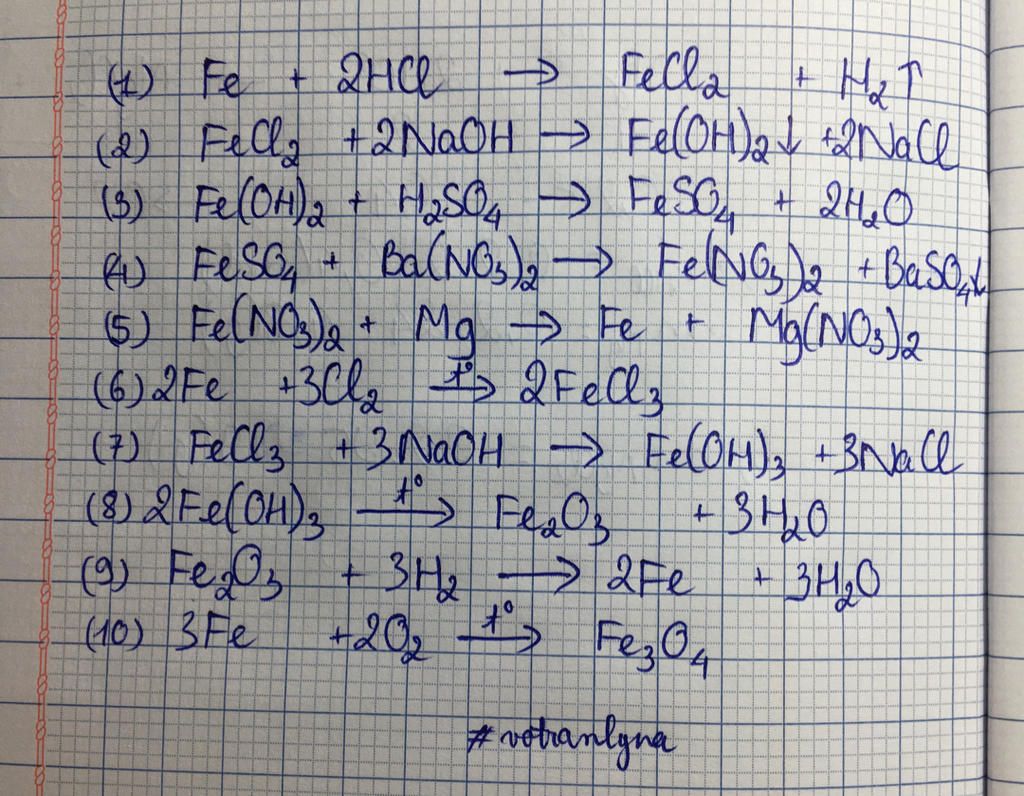 (1) Fe + 2HCl → FeCl₂ + H₂↑
(2) FeCl₂ +2NaOH → Fe(OH)₂↓ +2NaCl
(3) Fe(OH)₂ + H₂SO₄ → FeSO₄ + 2H₂O
(4) FeSO₄ + Ba(NO₃)₂ → Fe(NO₃)₂ + BaSO₄↓
(5) Fe(NO₃)₂ + Mg → Fe + Mg(NO₃)₂
(6) 2Fe +3Cl₂ t°→ 2FeCl₃
(7) FeCl₃ + 3NaOH → Fe(OH)₃ +3NaCl
(8) 2Fe(OH)₃ t°→ Fe₂O₃ + 3H₂O
(9) Fe₂O₃ + 3H₂ → 2Fe + 3H₂O
(10) 3Fe +2O₂ t°→ Fe₃O₄
#votranlyna